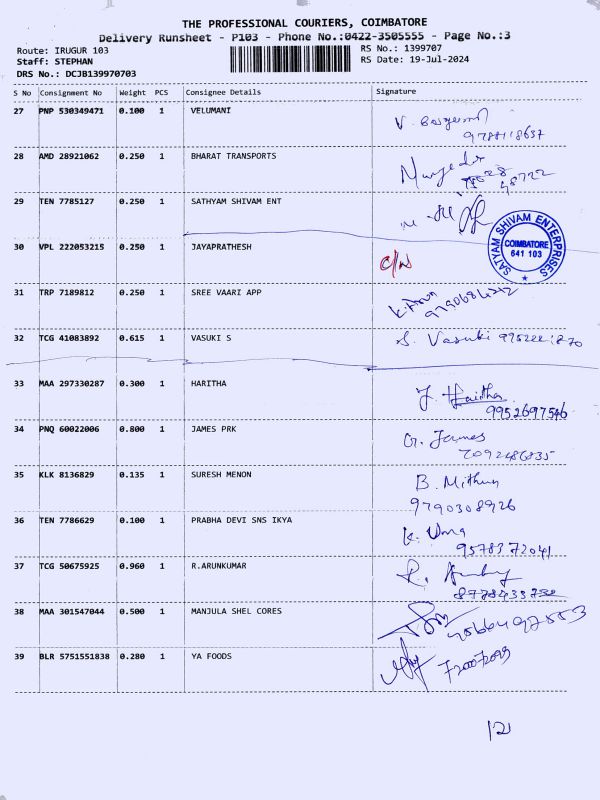 THE PROFESSIONAL COURIERS, COIMBATORE
Delivery Runsheet - P103 - Phone No.:0422-3505555 - Page No.:3
Route: IRUGUR 103 RS No.: 1399707
Staff: STEPHAN RS Date: 19-Jul-2024
DRS No.: DCJB139970703
S No Consignment No Weight PCS Consignee Details Signature
27 PNP 530349471 0.100 1 VELUMANI
9788118637
28 AMD 28921062 0.250 1 BHARAT TRANSPORTS
48722
29 TEN 7785127 0.250 1 SATHYAM SHIVAM ENT
SATYAM SHIVAM ENTERPRISES
COIMBATORE
641 103
30 VPL 222053215 0.250 1 JAYAPRATHESH
31 TRP 7189812 0.250 1 SREE VAARI APP
32 TCG 41083892 0.615 1 VASUKI S S. Vasuki
33 MAA 297330287 0.300 1 HARITHA
9952697546
34 PNQ 60022006 0.800 1 JAMES PRK G. James
7092486835
35 KLK 8136829 0.135 1 SURESH MENON B. Mithun
9790308926
36 TEN 7786629 0.100 1 PRABHA DEVI SNS IKYA K. Uma
9578372041
37 TCG 50675925 0.960 1 R.ARUNKUMAR
38 MAA 301547044 0.500 1 MANJULA SHEL CORES
39 BLR 5751551838 0.280 1 YA FOODS